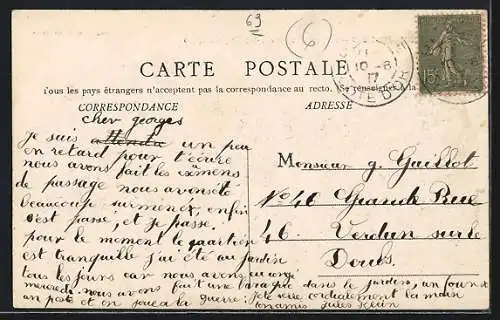 69
6
CARTE POSTALE
Tous les pays étrangers n'acceptent pas la correspondance au recto. (Se renseigner à la
CORRESPONDANCE
ADRESSE
10 -8
17
15
cher georges
Je suis attendu un peu
en retard pour t'écrire
nous avons fait les examens
de passage nous avons été
beaucoup surmenés, enfin
c'est passé, et je passe.
pour le moment le quartier
est tranquille j'ai été au jardin
tous les jours car nous avons congé
mercredi. nous avons fait une baraque dans le jardin, un four
un poste et on joue a la guerre. Je te serre cordialement la main
ton ami Jules
Monsieur g. Gaillot
No 46 Grande Rue
46. Verdun sur le
Doubs.